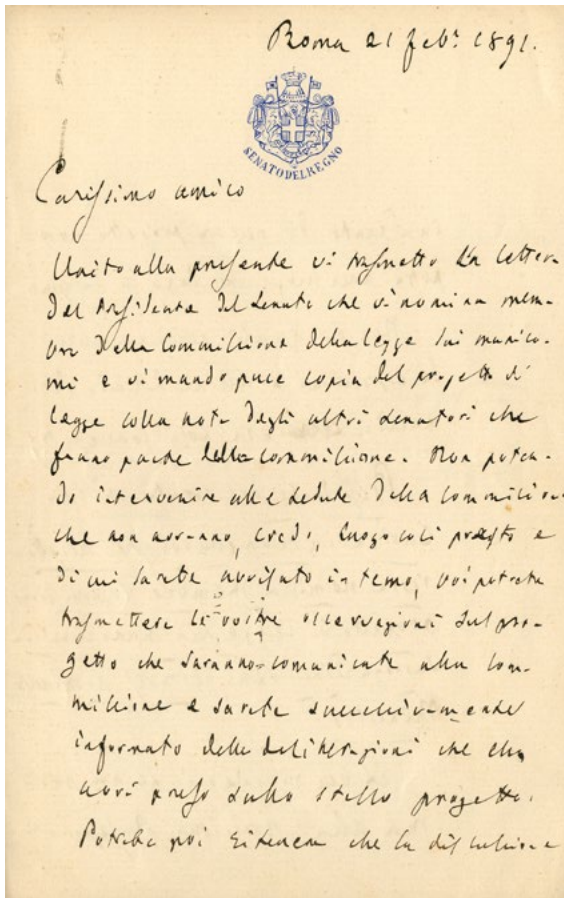 Roma 21 febº 1891.
SENATO DEL REGNO
Carissimo amico
Unito alla presente vi trasmetto la lettera
del Presidente del Senato che vi nomina mem-
bro della Commissione della legge sui manico-
mi e vi mando pure copia del progetto di
legge colla nota degli altri Senatori che
fanno parte della commissione. Non poten-
do intervenire alle sedute della commissione
che non avranno, credo, luogo così presto e
di cui sarete avvisato in tempo, voi potrete
trasmettere le vostre osservazioni sul pro-
getto che saranno comunicate alla com-
missione e sarete successivamente
informato delle deliberazioni che essa
avrà preso sullo stesso progetto.
Potrete poi che la discussione